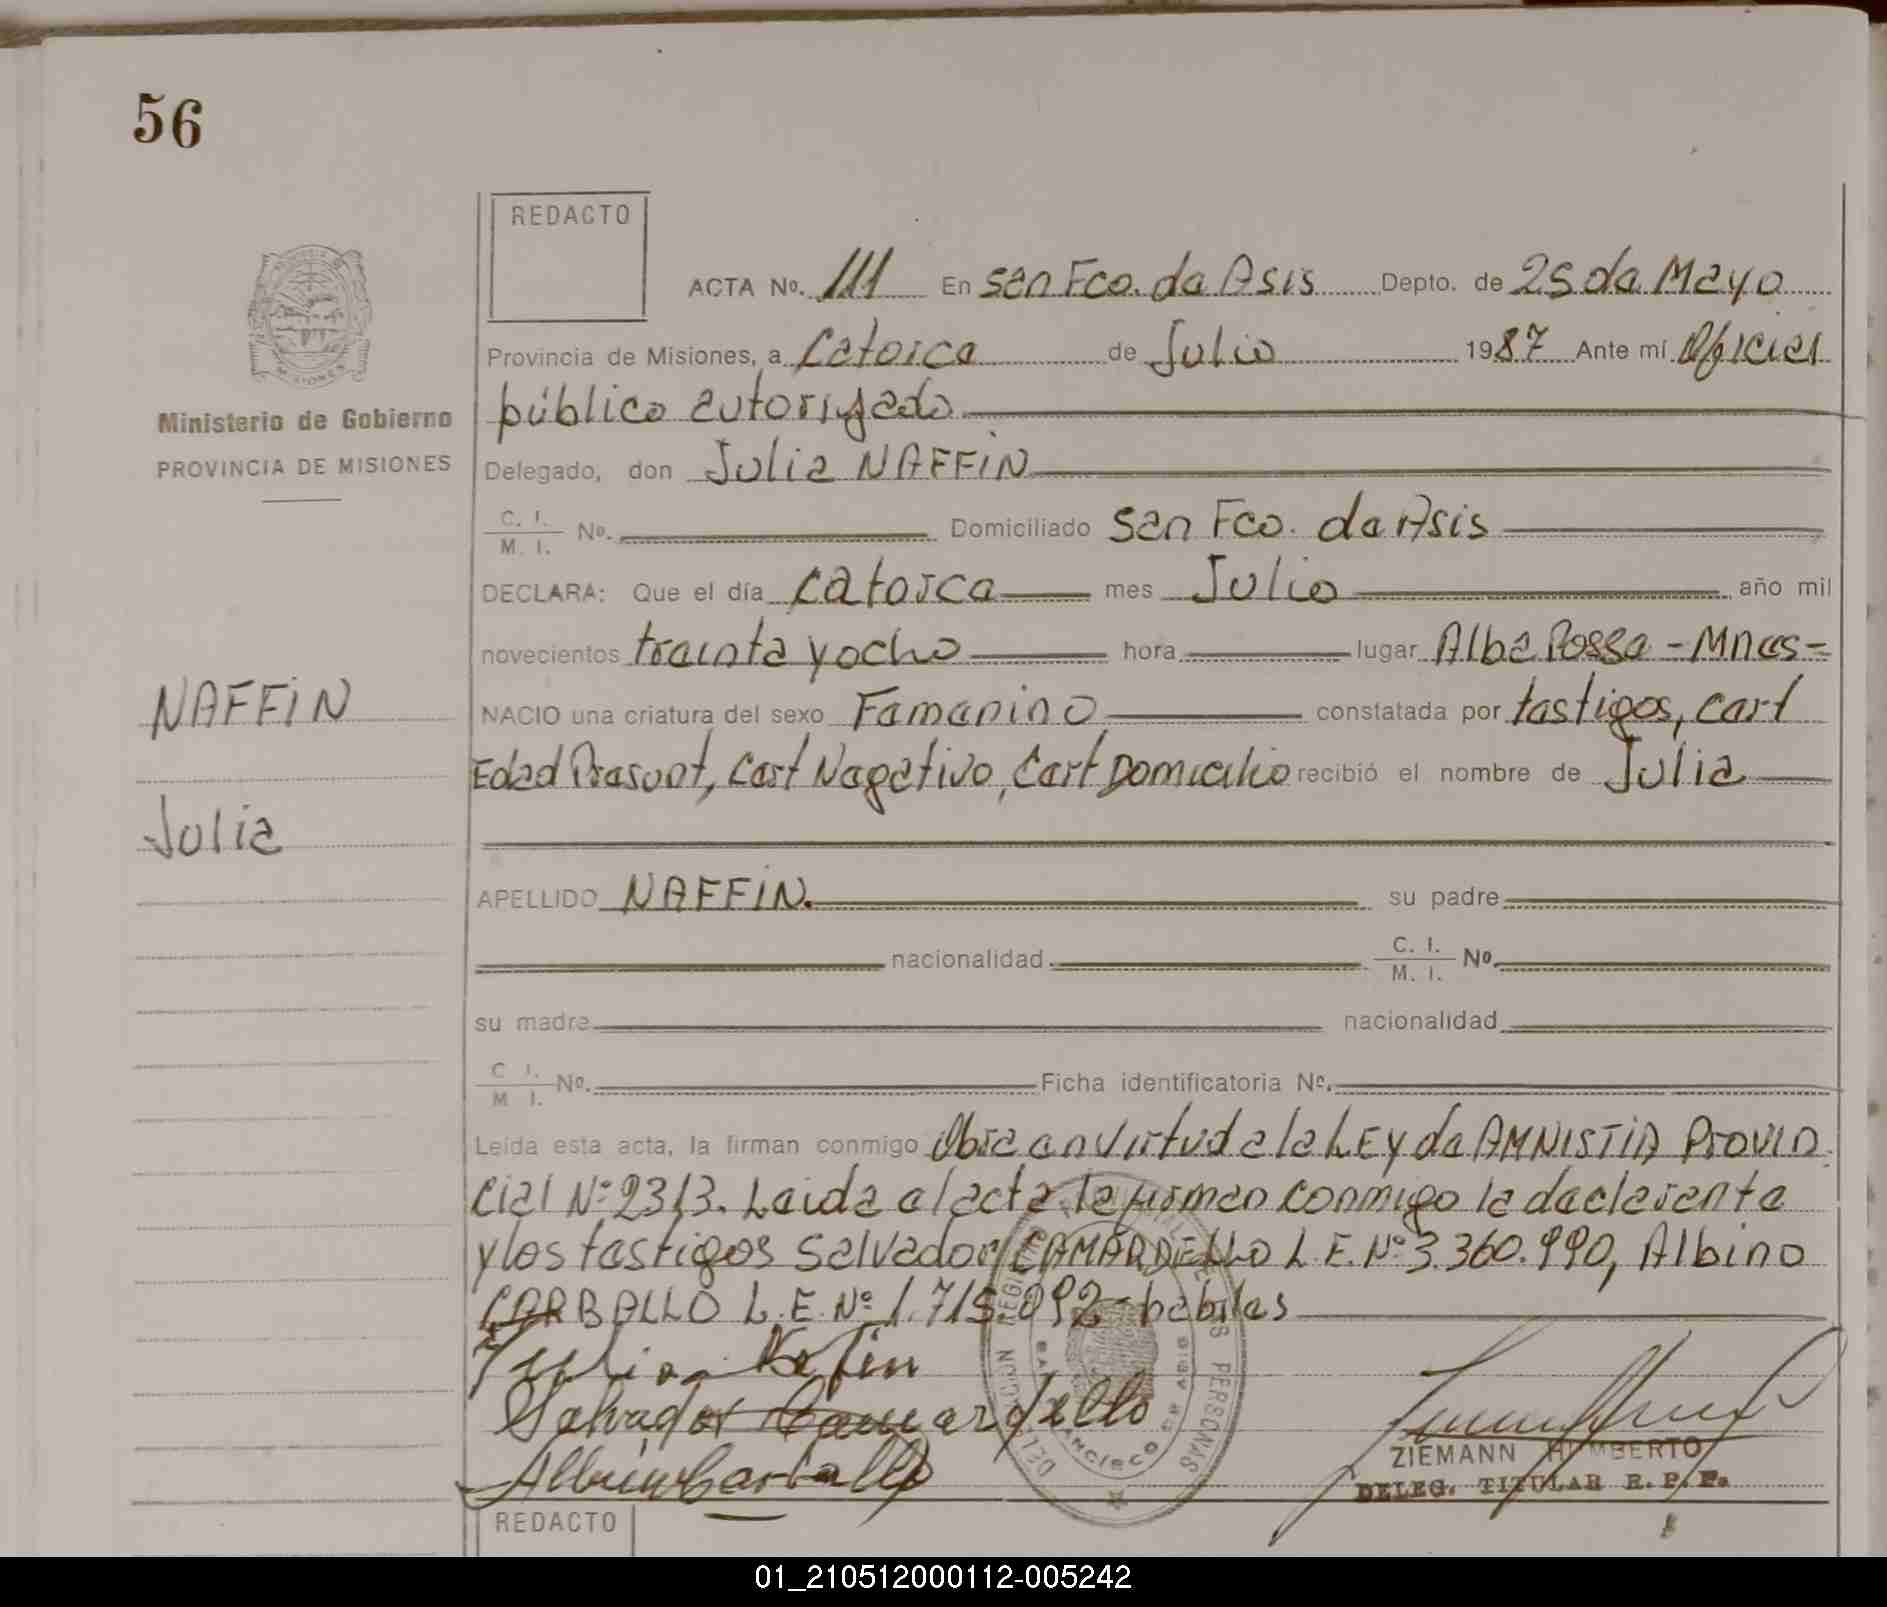 56
REDACTO
ACTA No. 111 En San Fco. de Asis Depto. de 25 de Mayo
Provincia de Misiones, a Catorce de Julio 1987 Ante mí Oficial
público autorizado
Ministerio de Gobierno
PROVINCIA DE MISIONES
Delegado, don Julia NAFFIN
C. I. / M. I. No. Domiciliado San Fco. de Asis
DECLARA: Que el día catorce mes Julio año mil
novecientos treinta y ocho hora lugar Alba Posse - Mnes-
NAFFIN
NACIO una criatura del sexo Femenino constatada por testigos, Cert
Edad Presunt, Cert Negativo, Cert Domicilio recibió el nombre de Julia
Julia
APELLIDO NAFFIN. su padre
nacionalidad C. I. / M. I. No.
su madre nacionalidad
C. I. / M. I. No. Ficha identificatoria No.
Leída esta acta, la firman conmigo Obra en virtud a la LEY de AMNISTIA Provin
cial Nº 2313. Leida el acta la firman conmigo la declarante
y los testigos Salvador CAMARDELLO L.E. Nº 3.360.990, Albino
CARBALLO L.E. Nº 1.715.092 habiles
Julia Nafin
Salvador Camardello
Albino Carballo
ZIEMANN HUMBERTO
DELEG. TITULAR R. P. P.
REDACTO
01_210512000112-005242